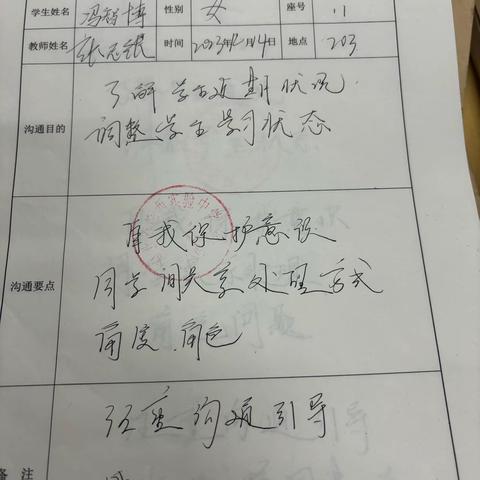 学生姓名 冯智博 性别 女 座号 11
教师姓名 时间 2023年 月14日 地点 203
沟通目的
了解学生近期状况
调整学生学习状态
沟通要点
自我保护意识
同学间关系处理方式
角度 角色
备注
沟通引导